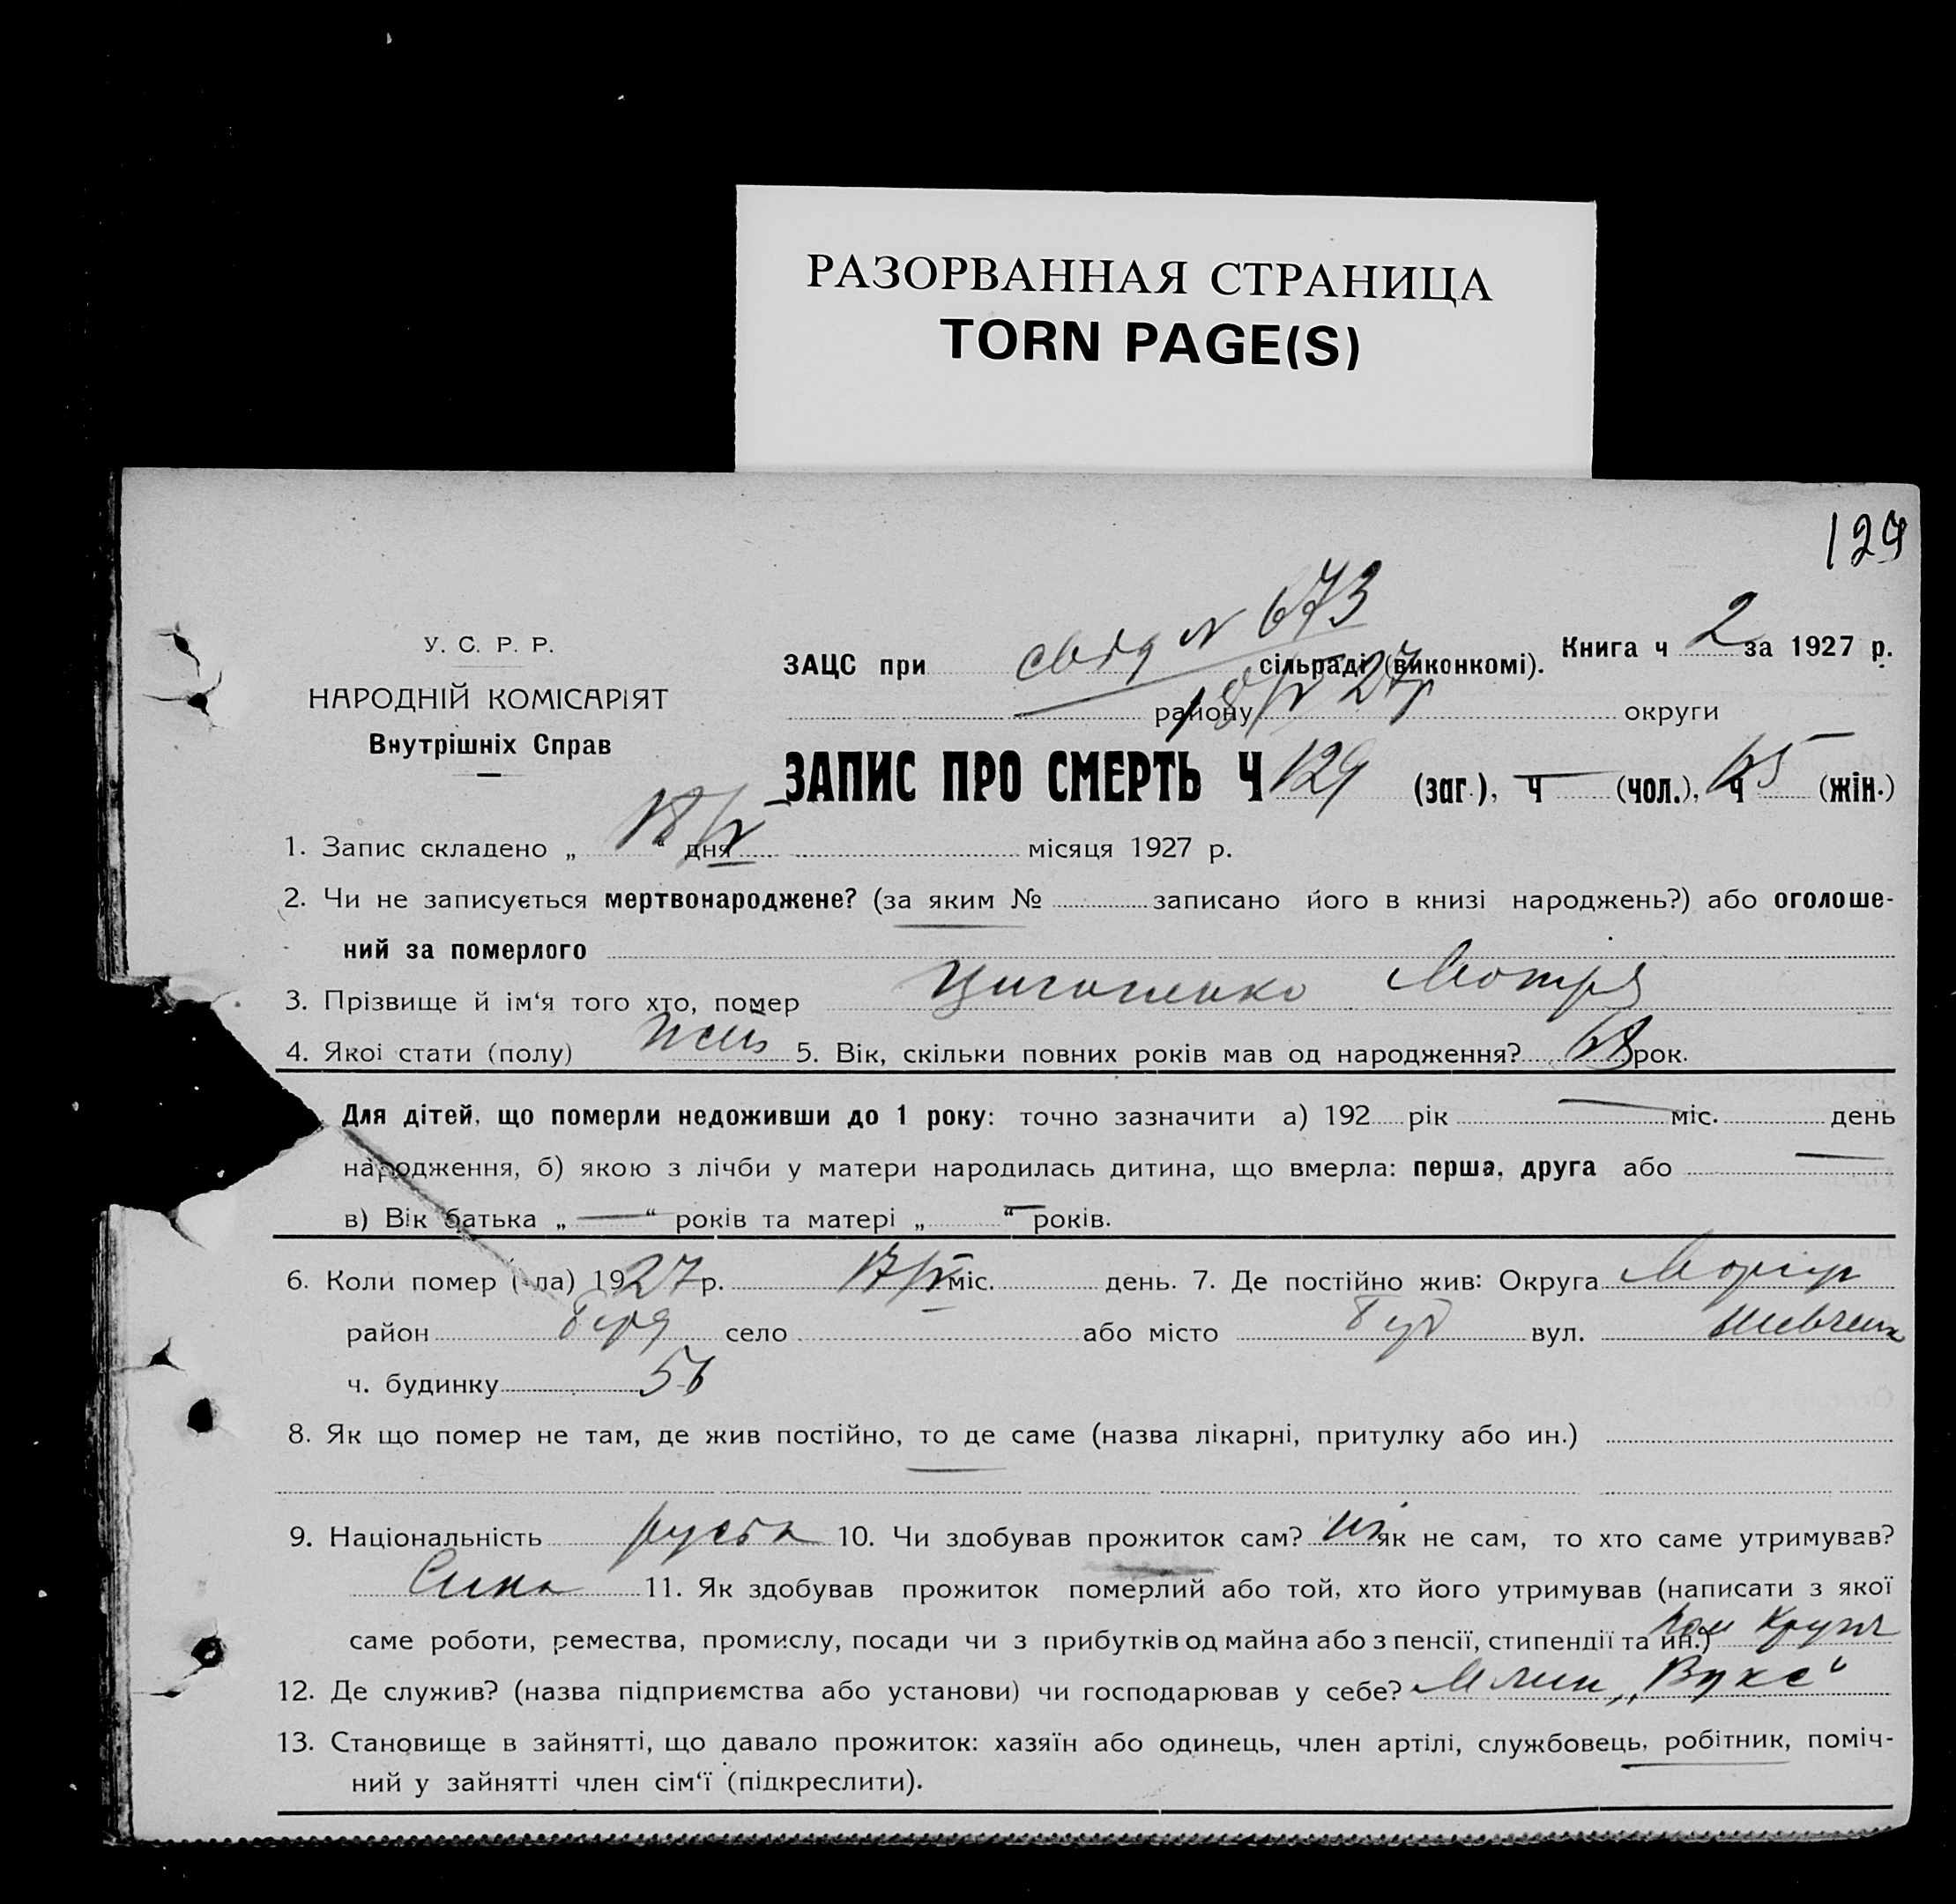 РАЗОРВАННАЯ СТРАНИЦА
TORN PAGE(S)
129
свід N 673
У. С. Р. Р.
НАРОДНІЙ КОМІСАРІЯТ
Внутрішніх Справ
ЗАЦС при сільраді (виконкомі). Книга ч 2 за 1927 р.
району округи
18/IV 27р
ЗАПИС ПРО СМЕРТЬ Ч 129 (заг.), ч — (чол.), ч 65 (жін.)
1. Запис складено „ 18/IV “ дня місяця 1927 р.
2. Чи не записується мертвонароджене? (за яким № записано його в книзі народжень?) або оголоше-
ний за померлого
3. Прізвище й ім‘я того хто, помер Циганенко Мотря
4. Якої стати (полу) жін 5. Вік, скільки повних років мав од народження? 68 рок.
Для дітей, що померли недоживши до 1 року: точно зазначити а) 192 рік — міс. день
народження, б) якою з лічби у матери народилась дитина, що вмерла: перша, друга або —
в) Вік батька „ — “ років та матері „ — “ років.
6. Коли помер (-ла) 1927 р. 17/IV міс. день. 7. Де постійно жив: Округа
район село або місто вул. Шевченк
ч. будинку 56
8. Як що помер не там, де жив постійно, то де саме (назва лікарні, притулку або ин.)
9. Національність руська 10. Чи здобував прожиток сам? ні як не сам, то хто саме утримував?
Сина 11. Як здобував прожиток померлий або той, хто його утримував (написати з якої
саме роботи, ремества, промислу, посади чи з прибутків од майна або з пенсії, стипендії та ин.)
12. Де служив? (назва підприємства або установи) чи господарював у себе? Млин
13. Становище в зайнятті, що давало прожиток: хазяїн або одинець, член артілі, службовець, робітник, поміч-
ний у зайнятті член сім‘ї (підкреслити).